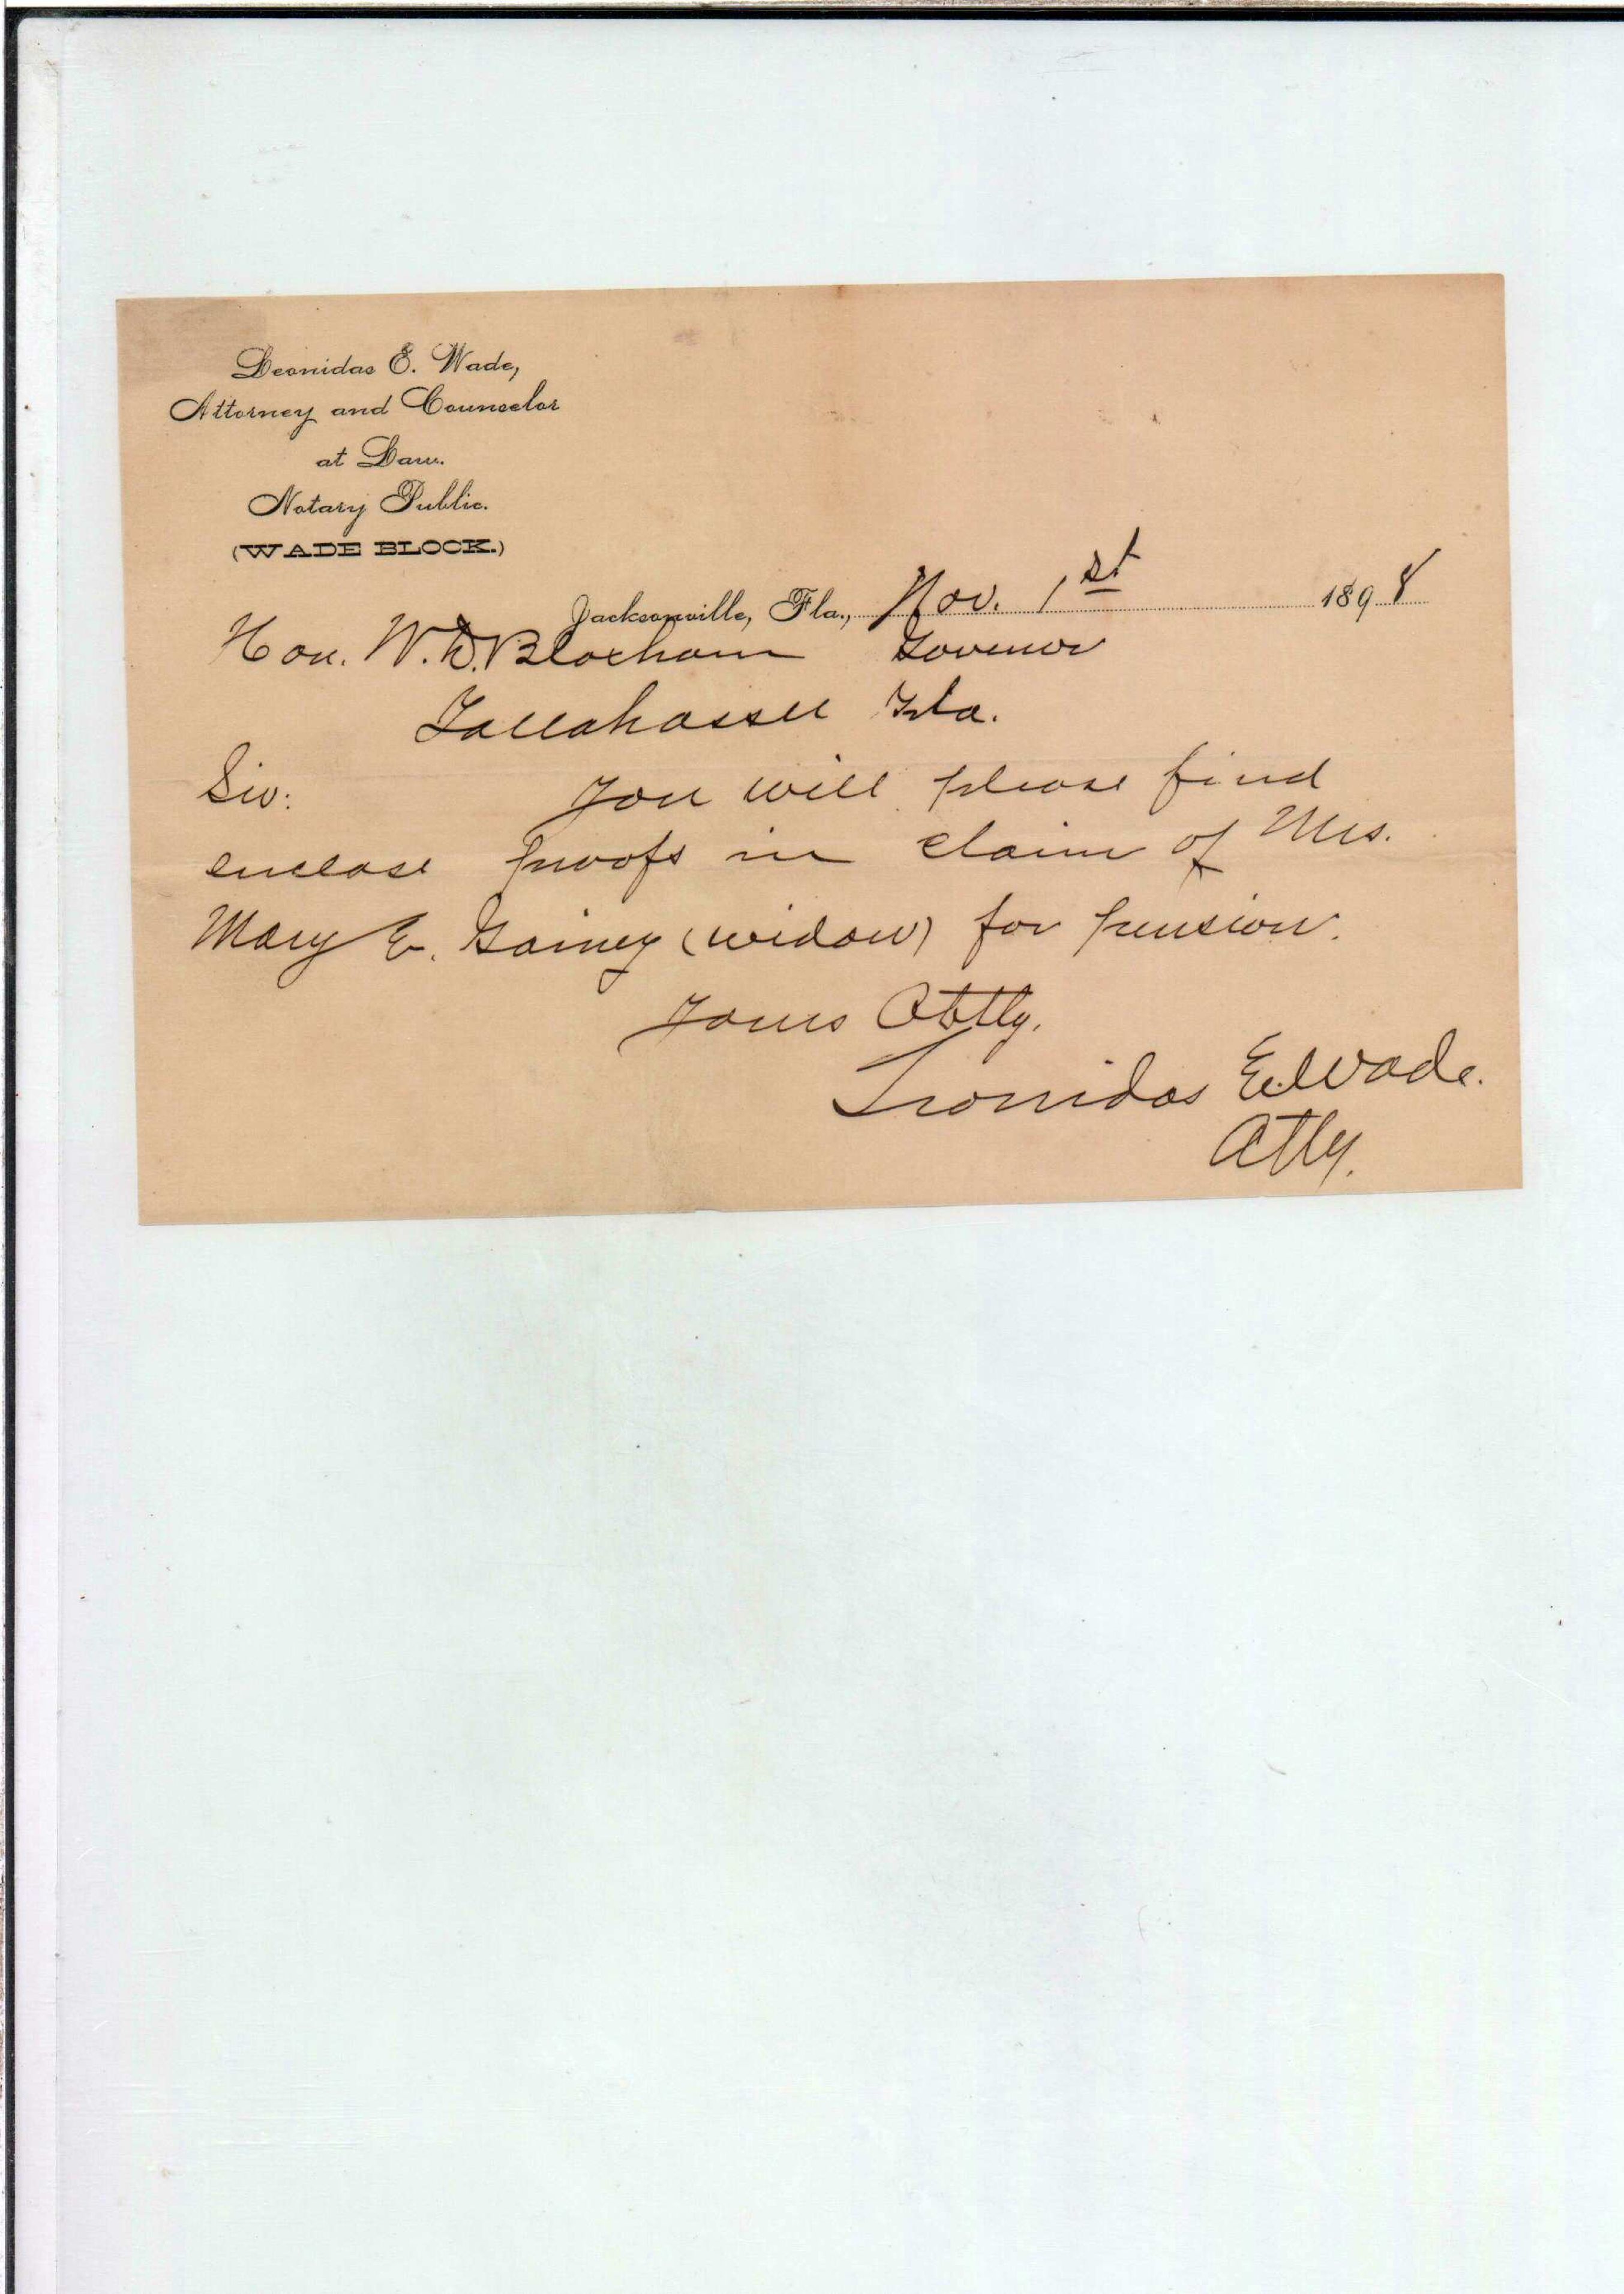 Leonidas E. Wade,
Attorney and Counselor
at Law.
Notary Public.
(WADE BLOCK.)
Jacksonville, Fla., Nov. 1st 1898
Hon. W. D. Bloxham Govenor
Tallahassee Fla.
Sir: You will please find
enclose proofs in claim of Mrs.
Mary E. Gainey (widow) for pension.
Yours
Leonidas E. Wade.
Atty.